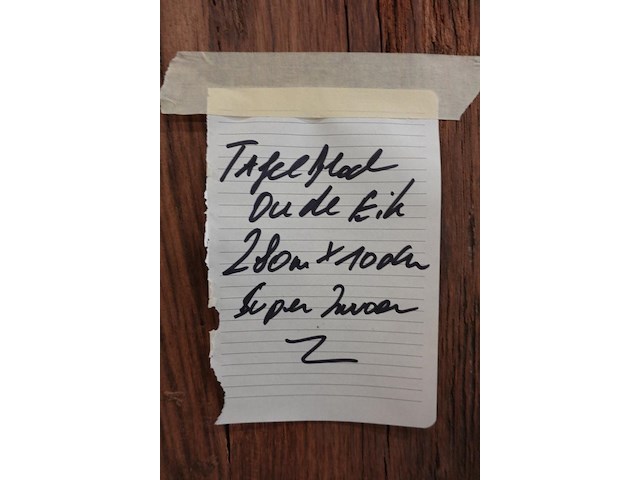 Tafelblad
Oude Eik
280cm x 100cm
Super Zwaar